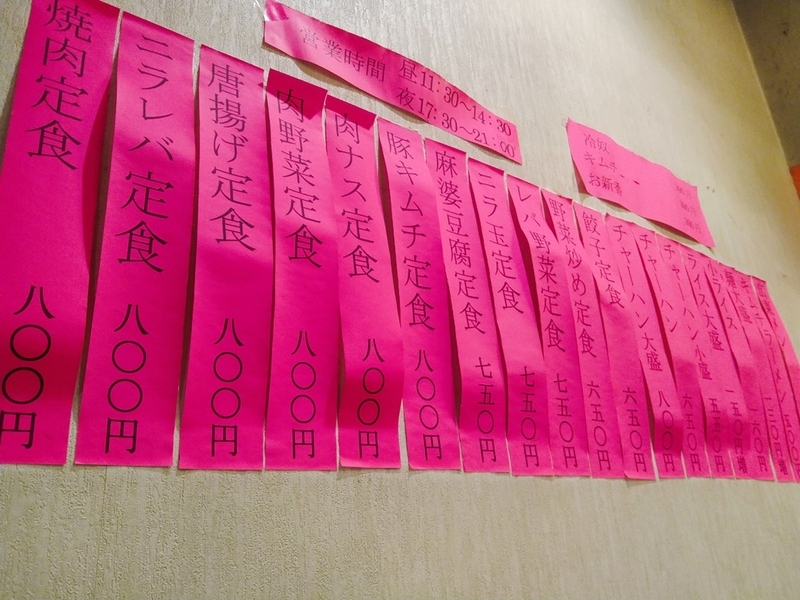 営業時間 昼11:30〜14:30
夜17:30〜21:00
冷奴
キムチ
お新香
焼肉定食 八〇〇円
ニラレバ定食 八〇〇円
唐揚げ定食 八〇〇円
肉野菜定食 八〇〇円
肉ナス定食 八〇〇円
豚キムチ定食 八〇〇円
麻婆豆腐定食 七五〇円
ニラ玉定食 七五〇円
レバ野菜定食 七五〇円
野菜炒め定食 六五〇円
餃子定食 六五〇円
チャーハン大盛 八〇〇円
チャーハン 六五〇円
チャーハン小盛 五五〇円
ライス大盛